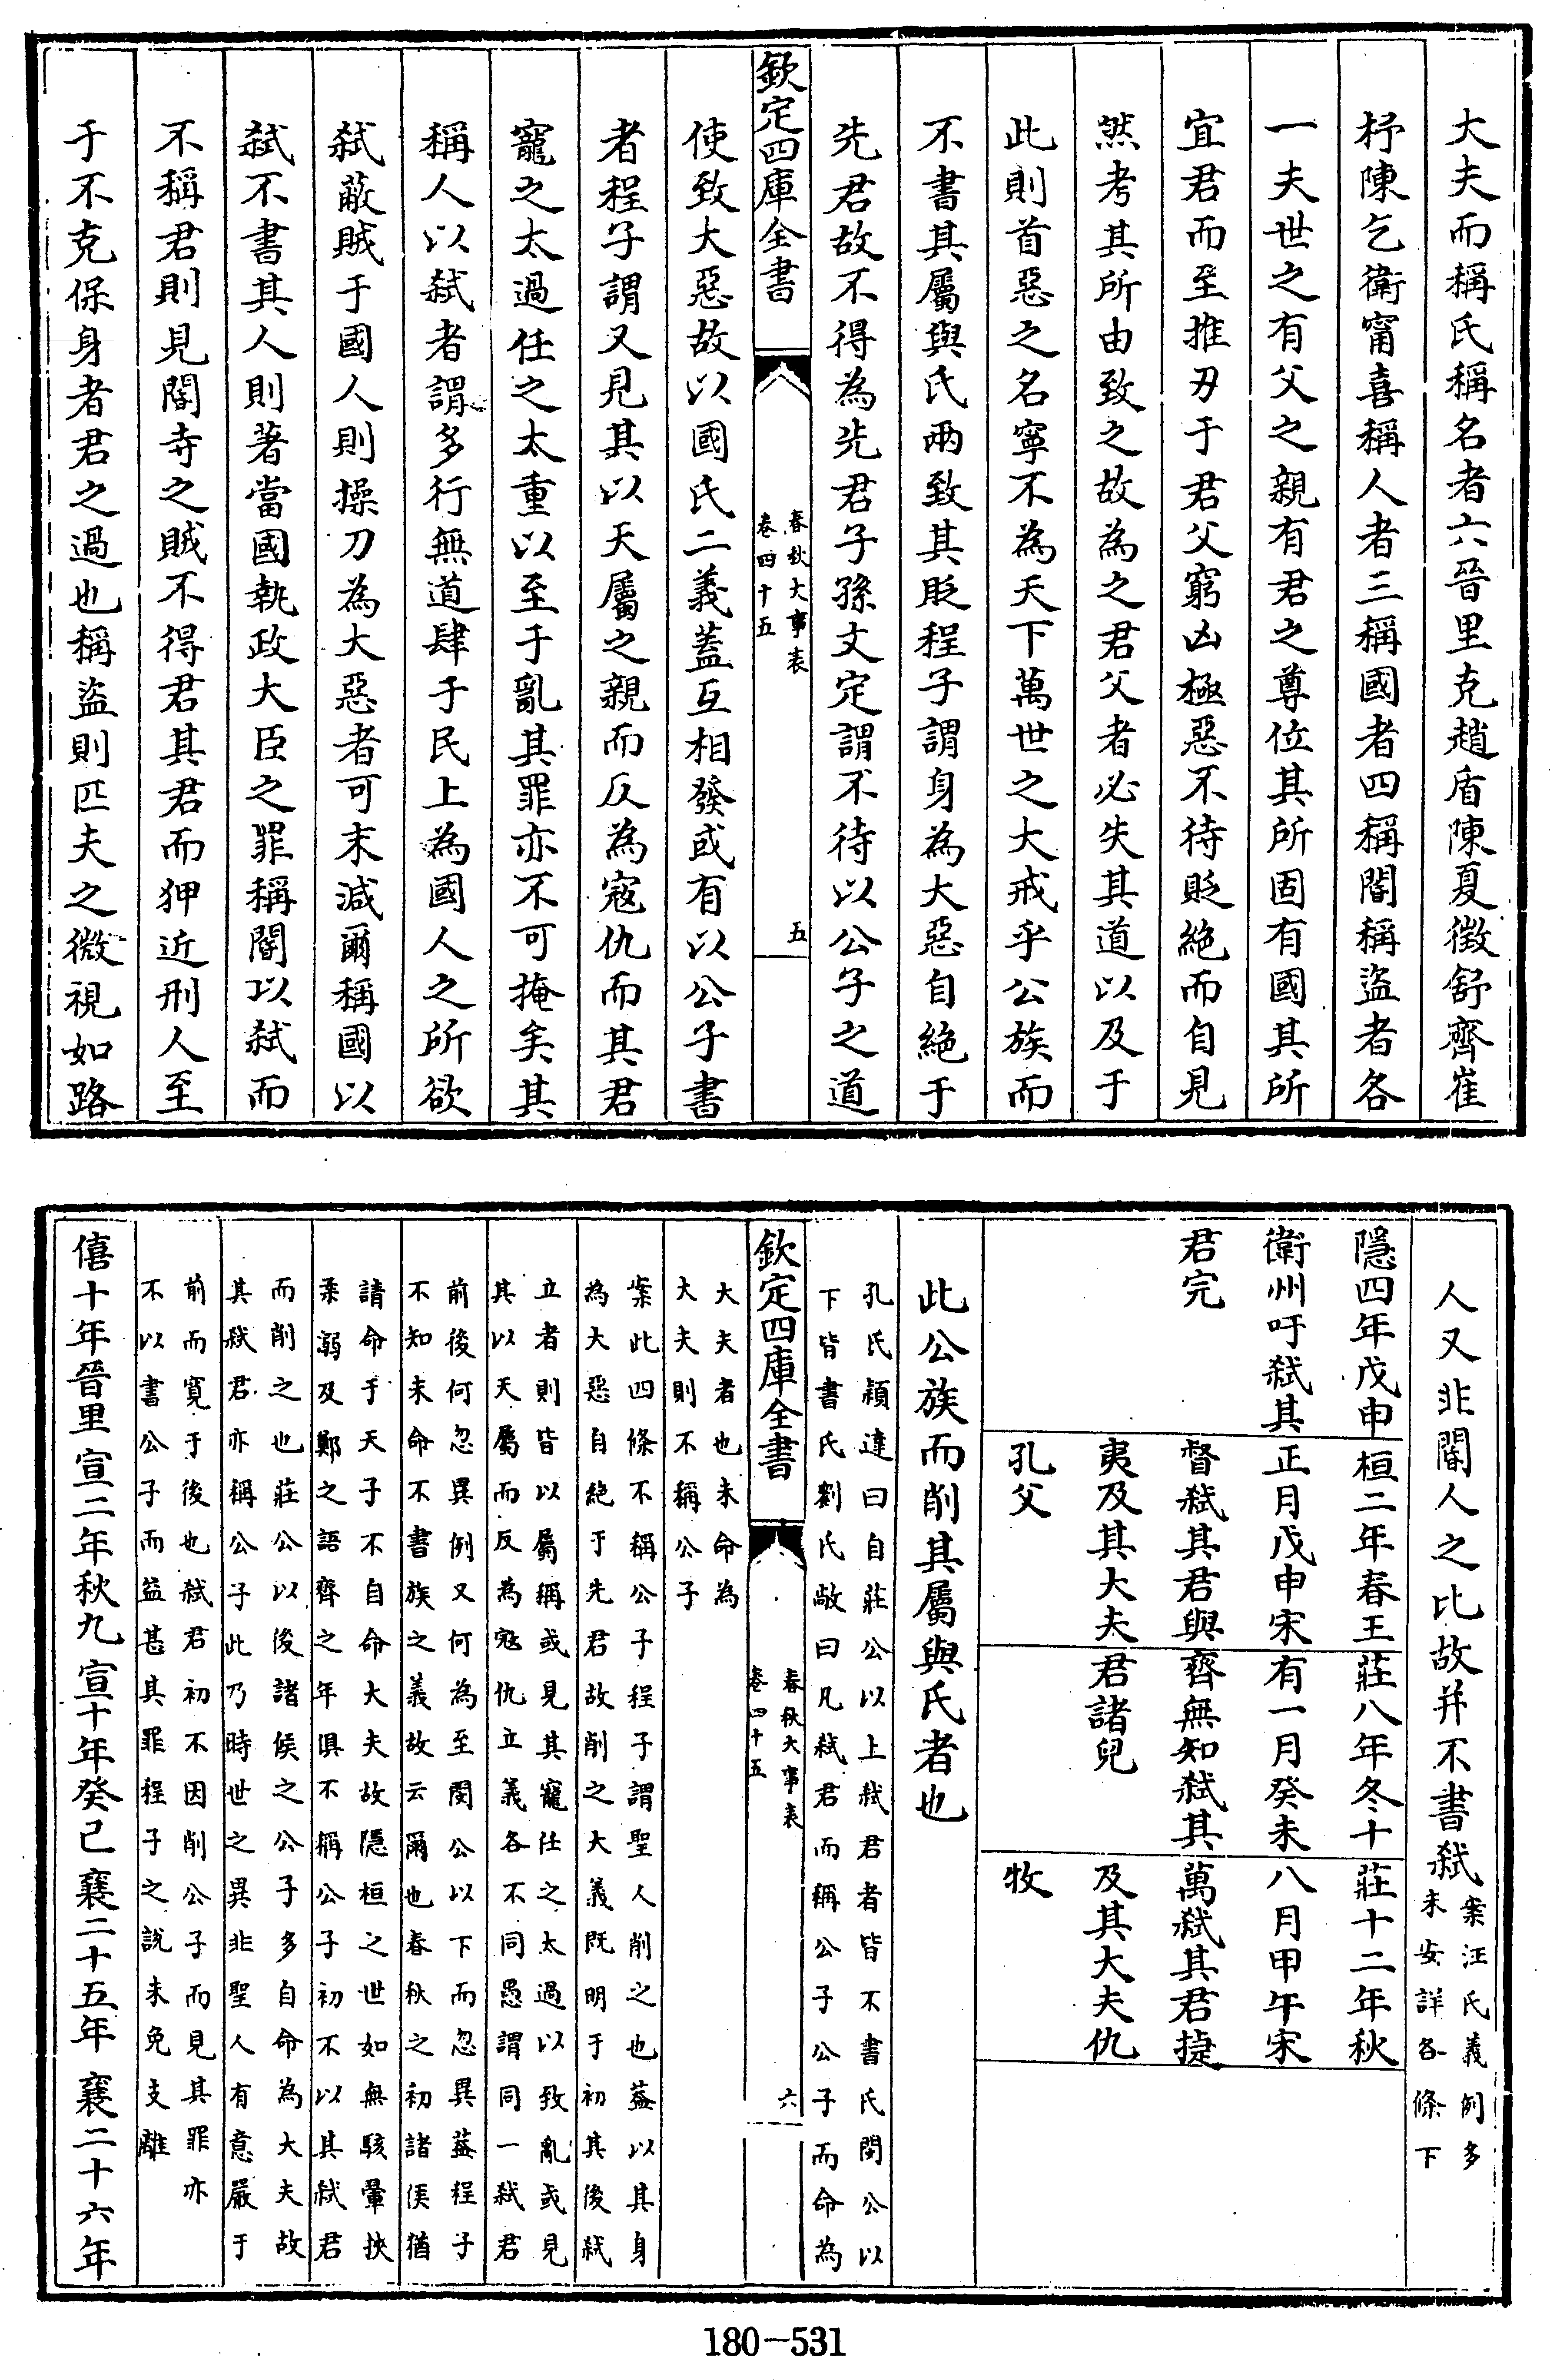 大夫而稱氏稱名者六晉里克趙盾陳夏徵舒齊崔
杼陳乞衛甯喜稱人者三稱國者四稱閽稱盜者各
一夫世之有父之親有君之尊位其所固有國其所
宜君而至推刃于君父窮凶極惡不待貶絕而自見
然考其所由致之故為之君父者必失其道以及于
此則首惡之名寧不為天下萬世之大戒乎公族而
不書其屬與氏兩致其貶程子謂身為大惡自絕于
先君故不得為先君子孫文定謂不待以公子之道
欽定四庫全書
春秋大事表
卷四十五
五
使致大惡故以國氏二義蓋互相發或有以公子書
者程子謂又見其以天屬之親而反為寇仇而其君
寵之太過任之太重以至于亂其罪亦不可掩矣其
稱人以弒者謂多行無道肆于民上為國人之所欲
弒蔽賊于國人則操刀為大惡者可末減爾稱國以
弒不書其人則著當國執政大臣之罪稱閽以弒而
不稱君則見閽寺之賊不得君其君而狎近刑人至
于不克保身者君之過也稱盜則匹夫之微視如路
人又非閽人之比故并不書弒
案汪氏義例多
未安詳各條下
隱四年戊申
衛州吁弒其
君完
桓二年春王
正月戊申宋
督弒其君與
夷及其大夫
孔父
莊八年冬十
有一月癸未
齊無知弒其
君諸兒
莊十二年秋
八月甲午宋
萬弒其君捷
及其大夫仇
牧
此公族而削其屬與氏者也
孔氏穎達曰自莊公以上弒君者皆不書氏閔公以
下皆書氏劉氏敞曰凡弒君而稱公子公子而命為
大夫者也未命為
大夫則不稱公子
欽定四庫全書
春秋大事表
卷四十五
六
案此四條不稱公子程子謂聖人削之也蓋以其身
為大惡自絕于先君故削之大義既明于初其後弒
立者則皆以屬稱或見其寵任之太過以致亂或見
其以天屬而反為寇仇立義各不同愚謂同一弒君
前後何忽異例又何為至閔公以下而忽異蓋程子
不知未命不書族之義故云爾也春秋之初諸侯猶
請命于天子不自命大夫故隱桓之世如無駭翬挾
柔溺及鄭之語齊之年俱不稱公子初不以其弒君
而削之也莊公以後諸侯之公子多自命為大夫故
其弒君亦稱公子此乃時世之異非聖人有意嚴于
前而寬于後也弒君初不因削公子而見其罪亦
不以書公子而益甚其罪程子之說未免支離
僖十年晉里
宣二年秋九
宣十年癸巳
襄二十五年
襄二十六年
180-531